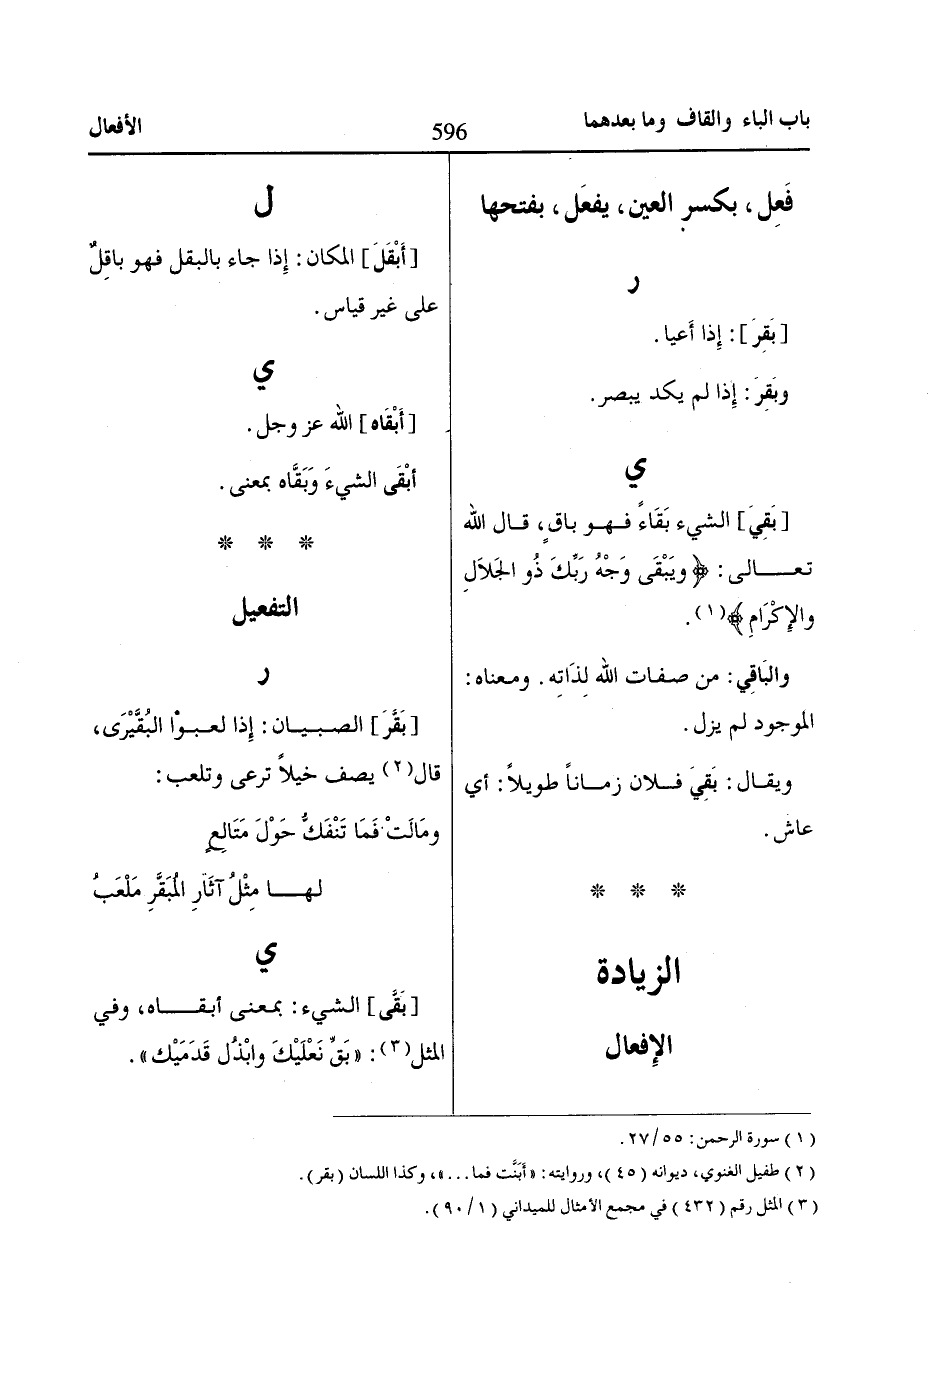 باب الباء والقاف وما بعدهما
596
الأفعال
فَعِل، بكسر العين، يفعَل، بفتحها
ر
[بَقِرَ]: إذا أَعيا.
وبَقِرَ: إذا لم يكد يبصر.
ي
[بَقِيَ] الشيء بَقَاءً فهو باقٍ، قال الله
تعالى: ﴿ويَبْقَى وَجْهُ رَبِّكَ ذُو الجَلاَلِ
والإِكْرَامِ﴾(١).
والبَاقِي: من صفات الله لِذَاتِه. ومعناه:
الموجود لم يزل.
ويقال: بَقِيَ فلان زماناً طويلاً: أي
عاش.
* * *
الزيادة
الإفعال
ل
[أَبْقَلَ] المكان: إذا جاء بالبقل فهو باقِلٌ
على غير قياس.
ي
[أَبْقَاه] الله عز وجل.
أبْقَى الشيءَ وَبَقَّاه بمعنى.
* * *
التفعيل
ر
[بَقَّرَ] الصبيان: إذا لعبوْا البُقَّيْرَى،
قال(٢) يصف خيلاً ترعى وتلعب:
ومَالَتْ فَمَا تَنْفَكُّ حَوْلَ مَتَالِعٍ
لها مِثْلُ آثَارِ المُبَقَّرِ مَلْعَبُ
ي
[بَقَّى] الشيء: بمعنى أبقاه، وفي
المثل(٣): «بَقِّ نَعْلَيْكَ وابْذُل قَدَمَيْك».
(١) سورة الرحمن: ٥٥/٢٧.
(٢) طفيل الغنوي، ديوانه (٤٥)، وروايته: «أبَنَّت فما...»، وكذا اللسان (بقر).
(٣) المثل رقم (٤٣٢) في مجمع الأمثال للميداني (١/٩٠).